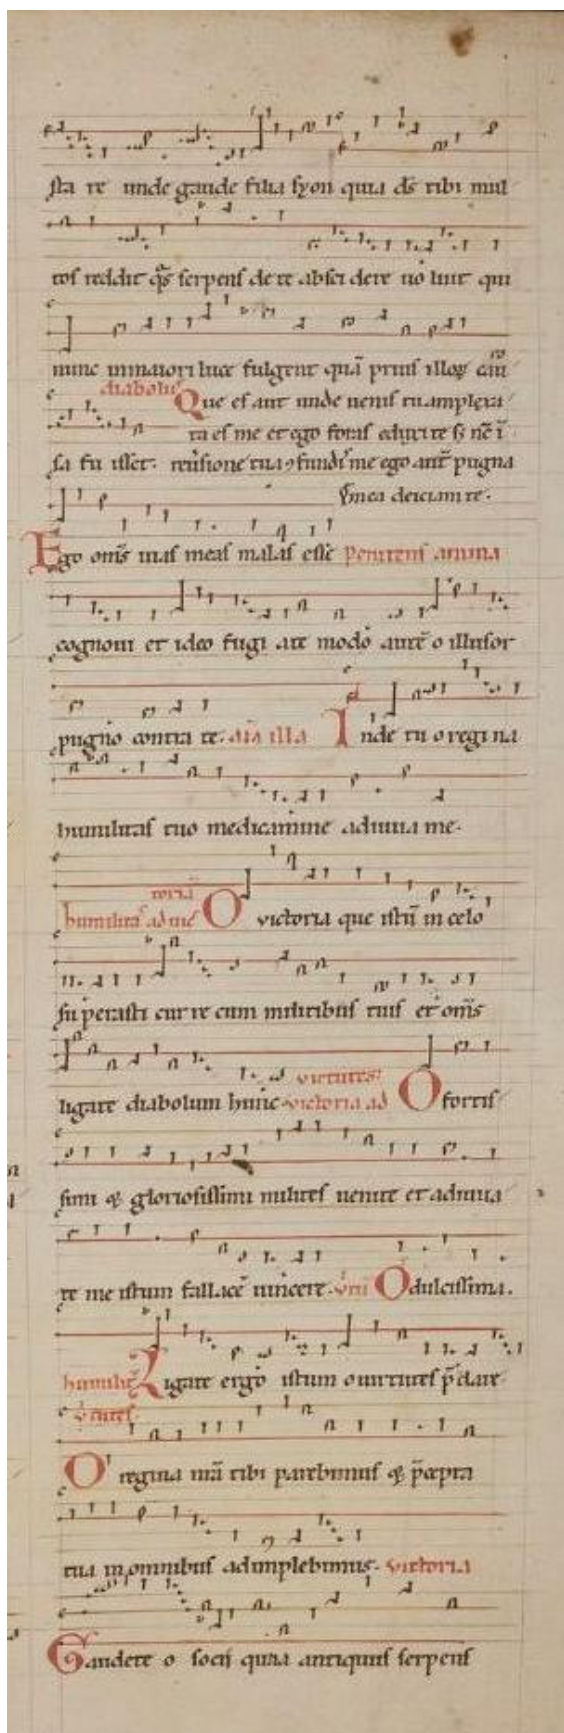 sta te unde gaude filia syon quia ds tibi mul
tos reddit qs serpens de te absci dere uo luit qui
nunc in maiori luce fulgent quā prius illoꝝ cāu
diabolus Que es aut unde uenis tu amplexa
ta es me et ego foras eduxi te sꝫ nē ī
sa fu isset.
me ego aut pugna
mea deiciam te.
Ego oms uias meas malas esse penitens anima
cognoui et ideo fugi a te modo autē o illusor
pugno contra te. aīa illa Inde tu o regi na
humilitas tuo medicamine adiuua me.
humilitas ad uic
toriā O victoria que istū in celo
su perasti cur re cum militibus tuis et oms
ligate diabolum hunc. victoria ad
virtutes. O fortis
simi et gloriosissimi milites uenite et adiuua
te me istum fallacē uincere. O dulcissima.
humilit Ligate ergo istum o uirtutes p̄clare
O regina nr̄a tibi parebimus et p̄cepta
tua in omnibus adimplebimus. victoria
Gaudete o socii quia antiquus serpens